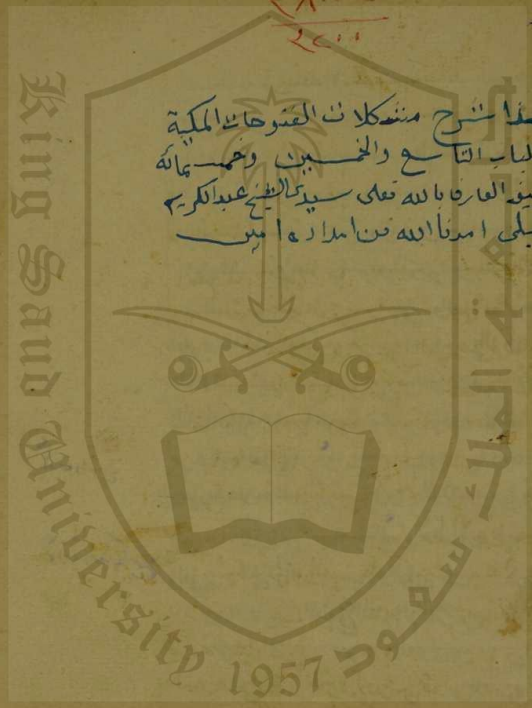 هذا شرح مشكلات الفتوحات المكية
لباب التاسع والخمسين وخمسمائة
العارف بالله تعلى سيدي الشيخ عبدالكريم
يلى امدنا الله من امداده امين
King Saud University
1957
جامعة الملك سعود